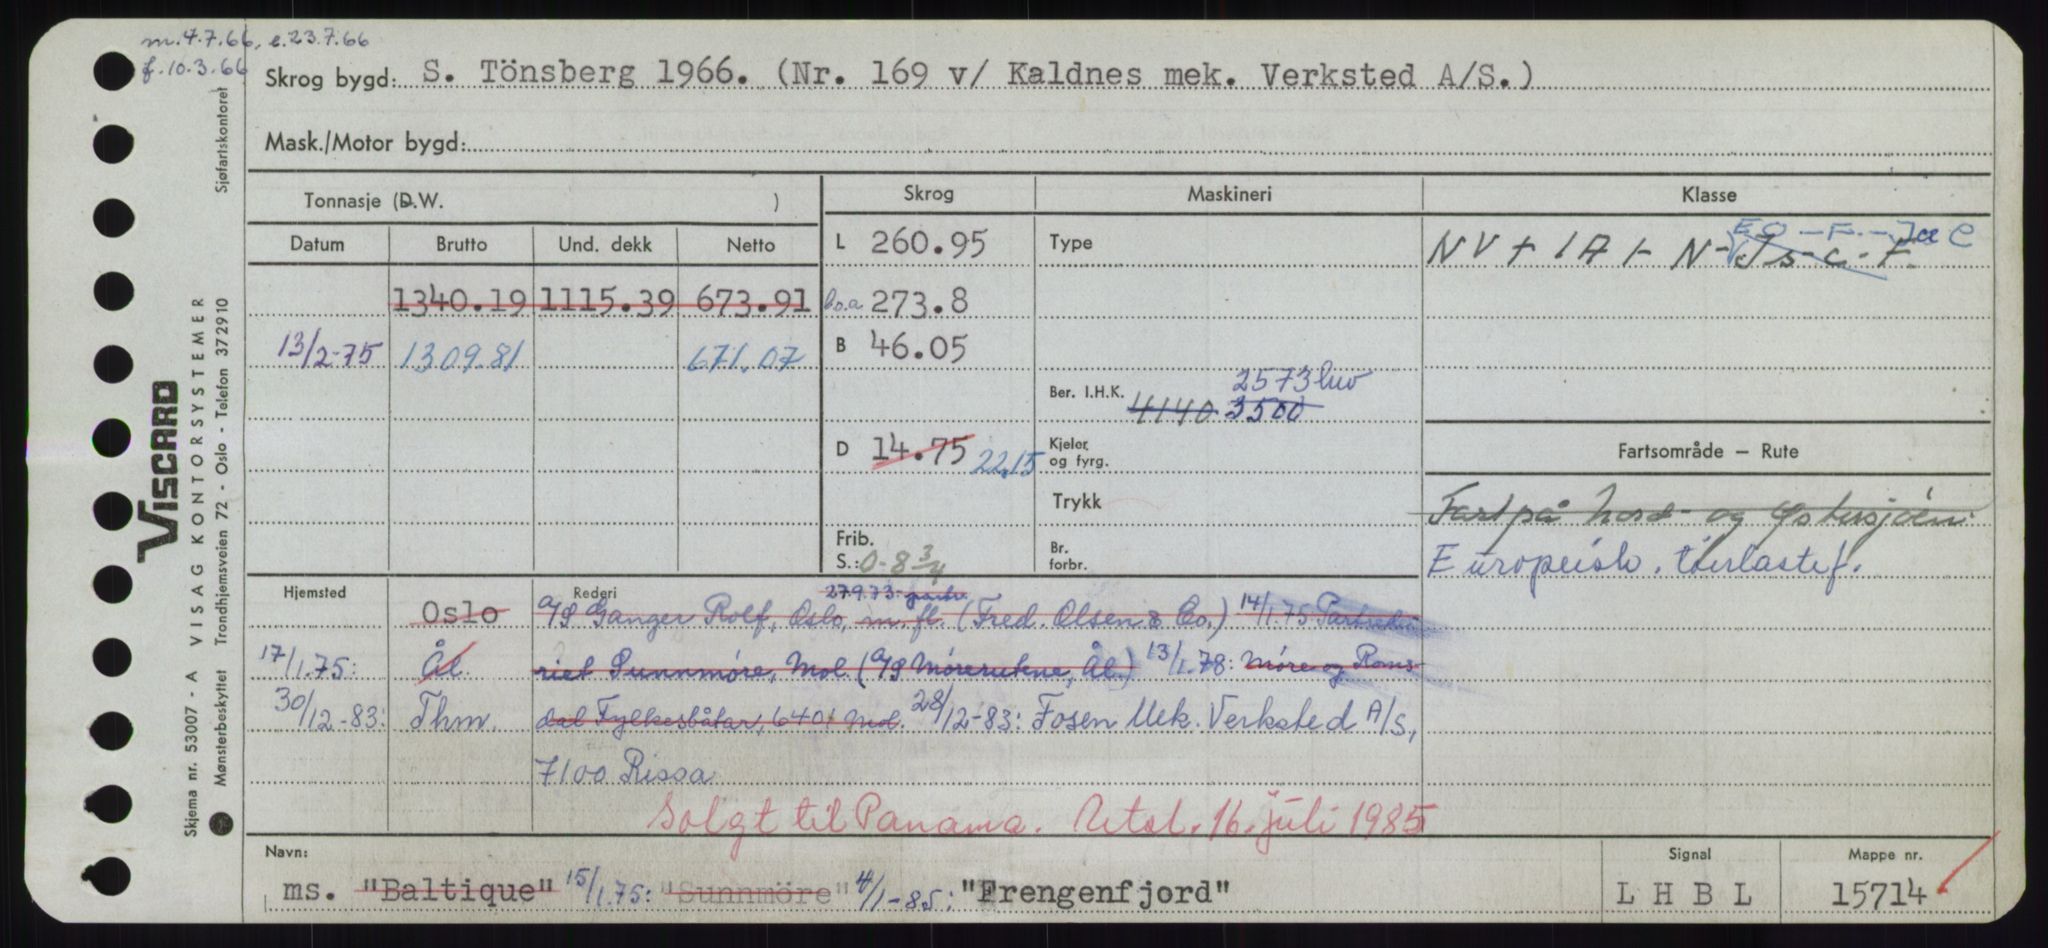 m.4.7.66, e.23.7.66
f.10.3.66
Skrog bygd: S. Tönsberg 1966. (Nr. 169 v/ Kaldnes mek. Verksted A/S.)
Mask./Motor bygd:
Tonnasje (D.W. )
Skrog
Maskineri
Klasse
Datum Brutto Und. dekk Netto
L 260.95
Type
EO - F. - Ice C
NV + 1A1 - N - Is-C - F.
1340.19 1115.39 673.91
lo.a 273.8
13/2-75 1309.81 671.07
B 46.05
2573 hw
Ber. I.H.K. 4140 3500
D 14.75 22.15
Kjeler og fyrg.
Fartsområde — Rute
Trykk
Fart på Nord- og Østersjöen.
Frib.
S.: 0-8 3/4
Br. forbr.
Europeisk. tørrlastef.
Hjemsted Rederi 27.9.73: partr.
Oslo A/S Ganger Rolf, Oslo, m.fl. (Fred. Olsen & Co.) 14/1.75 Partrede
17/1.75: Ål riet Sunnmöre, Mol. (A/S Mörerutene, Ål.) 13/1.78: Möre og Roms-
30/12-83: Thm. dal Fylkesbåtar, 6401 Mol. 28/12-83: Fosen Mek. Verksted A/S,
7100 Rissa
Solgt til Panama. Utsl. 16. juli 1985
Navn:
Signal
Mappe nr.
ms. "Baltique" 15/1.75: "Sunnmöre" 4/1-85: "Frengenfjord"
L H B L
15714
VISCARD
Skjema nr. 53007 - A VISAG KONTORSYSTEMER
Mønsterbeskyttet Trondhjemsveien 72 - Oslo - Telefon 372910 Sjøfartskontoret